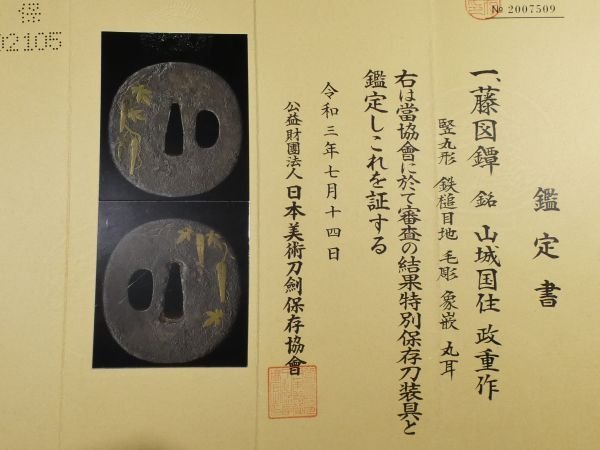 鑑定書
一、藤図鐔 銘 山城国住 政重作
竪丸形 鉄槌目地 毛彫 象嵌 丸耳
右は當協會に於て審査の結果特別保存刀装具と
鑑定しこれを証する
令和三年七月十四日
公益財團法人 日本美術刀劍保存協會
№ 2007509
保
02105